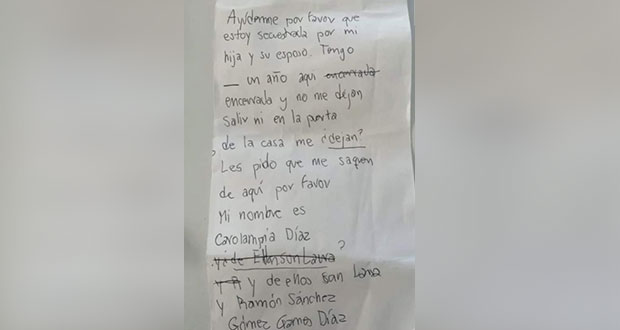 Ayúdenme por favor que
estoy secuestrada por mi
hija y su esposo. Tengo
_ un año aqui encerrada
encerrada y no me dejan
salir ni en la puerta
de la casa me ¿dejan?
Les pido que me saquen
de aquí por favor
Mi nombre es
Carolampia Díaz
?
y de ellos son Lana
y Ramón Sánchez
Gómez Gomes Díaz